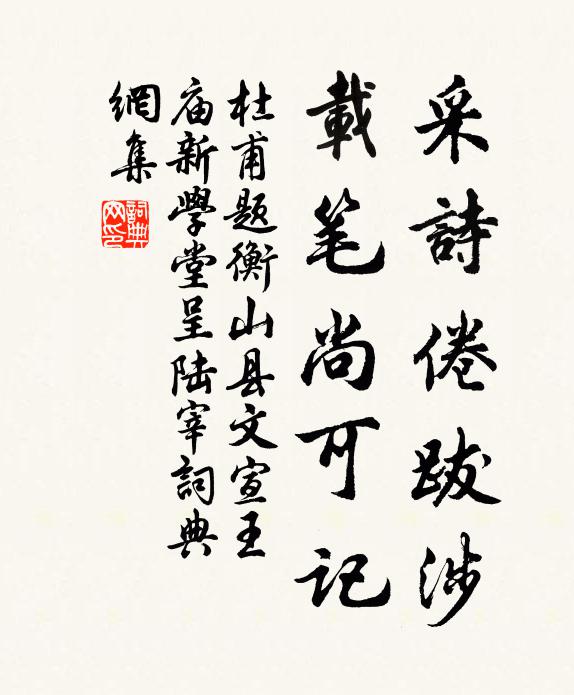 采詩倦跋涉
載笔尚可记
杜甫題衡山县文宣王
庙新學堂呈陆宰詞典
網集
詞典
网印